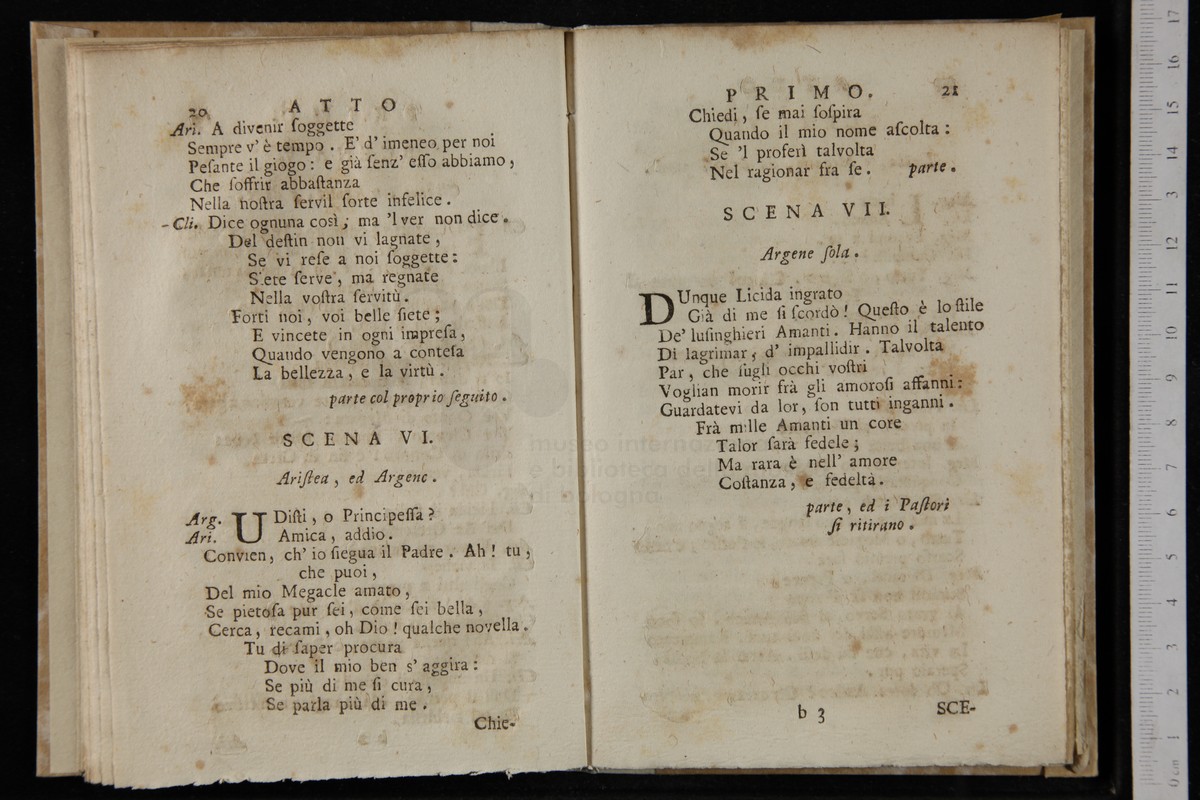 20 A T T O
Ari. A divenir ſoggette
Sempre v' è tempo . E' d' imeneo per noi
Peſante il giogo : e già ſenz' eſſo abbiamo ,
Che ſoffrir abbaſtanza
Nella noſtra ſervil ſorte infelice .
- Cli. Dice ognuna così ; ma 'l ver non dice .
Del deſtin non vi lagnate ,
Se vi reſe a noi ſoggette :
Siete ſerve , ma regnate
Nella voſtra ſervitù .
Forti noi , voi belle ſiete ;
E vincete in ogni impreſa ,
Quando vengono a conteſa
La bellezza , e la virtù .
parte col proprio ſeguito .
S C E N A V I.
Ariſtea , ed Argene .
Arg. UDiſti , o Principeſſa ?
Ari. Amica , addio .
Convien , ch' io ſiegua il Padre . Ah ! tu ,
che puoi ,
Del mio Megacle amato ,
Se pietoſa pur ſei , come ſei bella ,
Cerca , recami , oh Dio ! qualche novella .
Tu di ſaper procura
Dove il mio ben s' aggira :
Se più di me ſi cura ,
Se parla più di me .
Chie-
P R I M O . 21
Chiedi , ſe mai ſoſpira
Quando il mio nome aſcolta :
Se 'l proferì talvolta
Nel ragionar fra ſe . parte .
S C E N A V I I.
Argene ſola .
DUnque Licida ingrato
Già di me ſi ſcordò ! Queſto è lo ſtile
De' luſinghieri Amanti . Hanno il talento
Di lagrimar , d' impallidir . Talvolta
Par , che ſugli occhi voſtri
Voglian morir frà gli amoroſi affanni :
Guardatevi da lor , ſon tutti inganni .
Frà mille Amanti un core
Talor ſarà fedele ;
Ma rara è nell' amore
Coſtanza , e fedeltà .
parte , ed i Paſtori
ſi ritirano .
b 3 SCE-
museo internaz
e biblioteca del
di bologna
0 cm 1 2 3 4 5 6 7 8 9 10 11 12 13 14 15 16 17